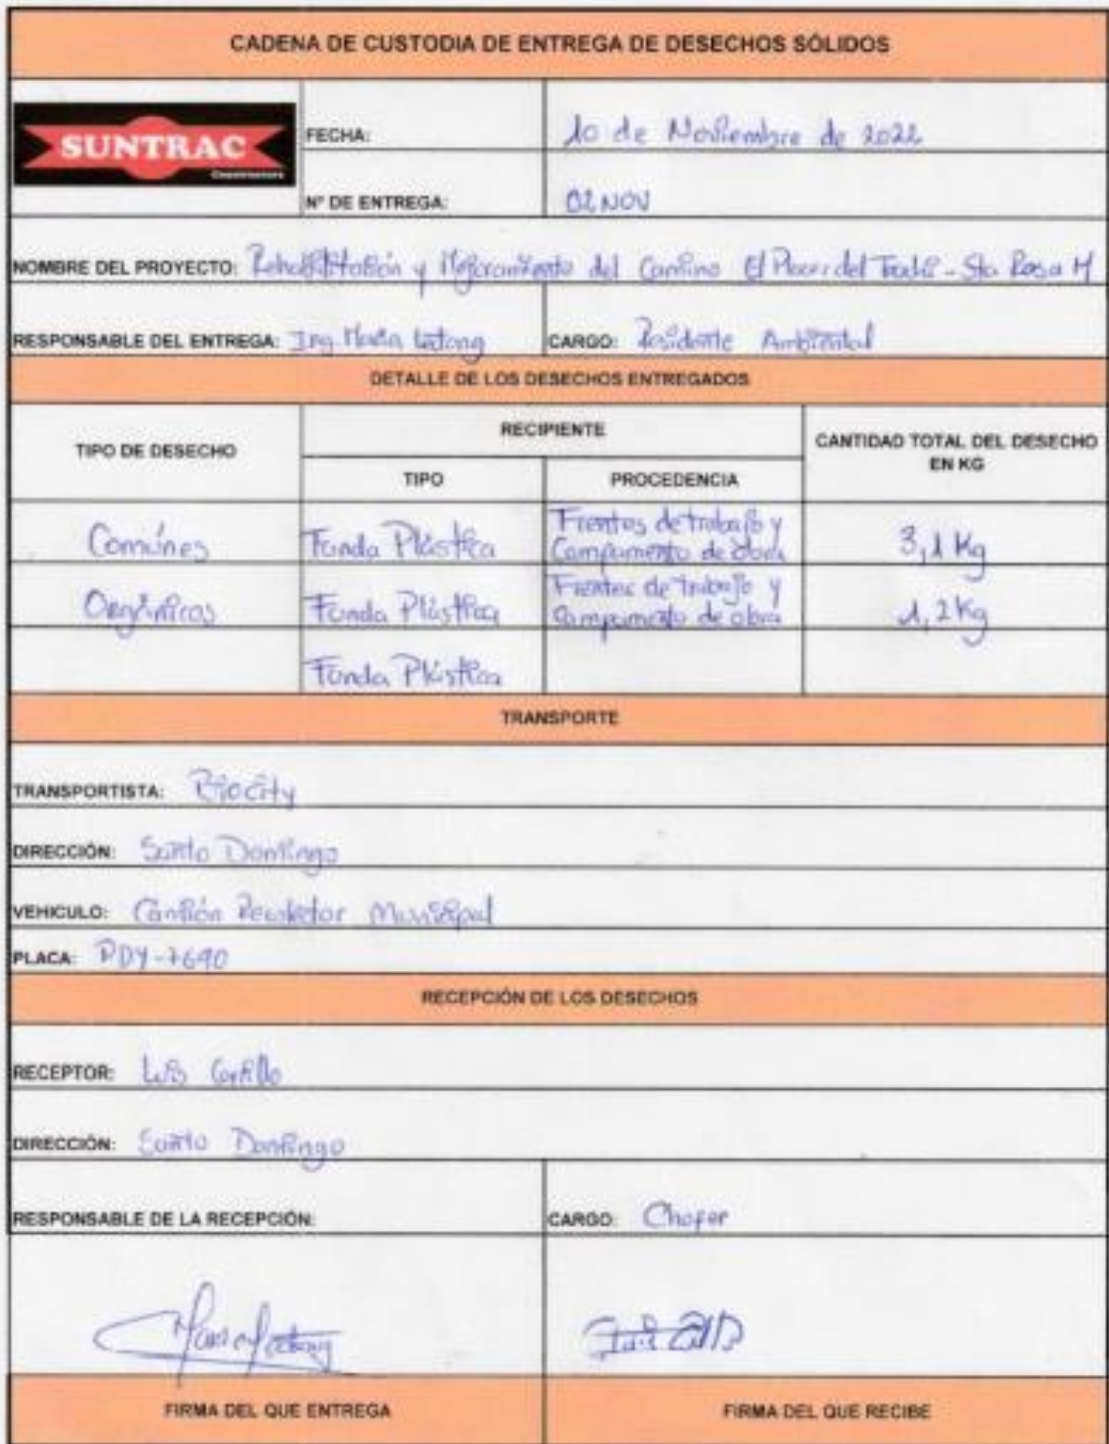 CADENA DE CUSTODIA DE ENTREGA DE DESECHOS SÓLIDOS
SUNTRAC
Constructora
FECHA: 10 de Noviembre de 2022
Nº DE ENTREGA: 02 NOV
NOMBRE DEL PROYECTO: Rehabilitación y Mejoramiento del Camino El Placer del Toachi - Sta Rosa M
RESPONSABLE DEL ENTREGA: Ing. María CARGO: Residente Ambiental
DETALLE DE LOS DESECHOS ENTREGADOS
TIPO DE DESECHO RECIPIENTE CANTIDAD TOTAL DEL DESECHO EN KG
TIPO PROCEDENCIA
Comúnes Funda Plástica Frentes de trabajo y Campamento de obra 3,1 Kg
Orgánicos Funda Plástica Frentes de trabajo y Campamento de obra 1,2 Kg
Funda Plástica
TRANSPORTE
TRANSPORTISTA:
DIRECCIÓN: Santo Domingo
VEHICULO: Camión Recolector Municipal
PLACA: PDY-7690
RECEPCIÓN DE LOS DESECHOS
RECEPTOR: Luis
DIRECCIÓN: Santo Domingo
RESPONSABLE DE LA RECEPCIÓN: CARGO: Chofer
FIRMA DEL QUE ENTREGA FIRMA DEL QUE RECIBE